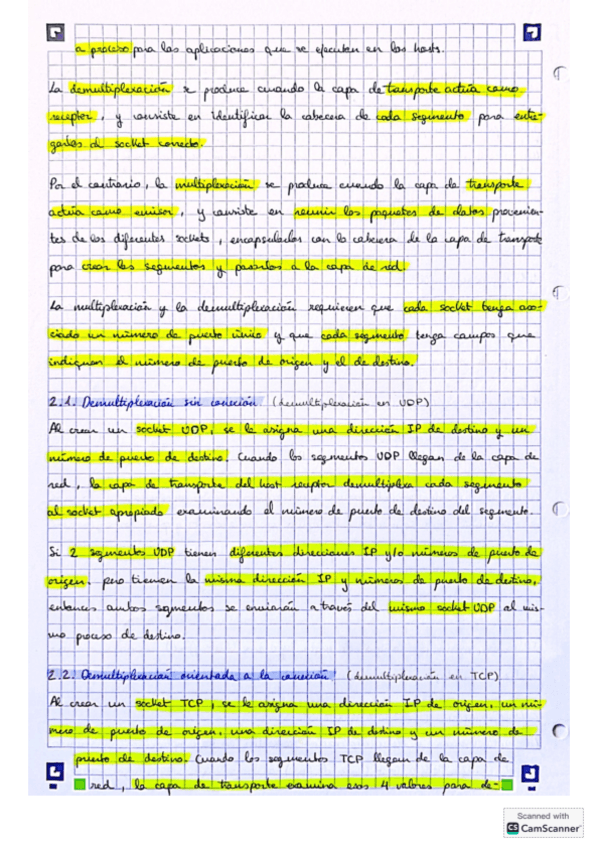 a proceso para las aplicaciones que se ejecuten en los hosts.
La demultiplexación se produce cuando la capa de transporte actúa como
receptor, y consiste en identificar la cabecera de cada segmento para entre-
garlos al socket correcto.
Por el contrario, la multiplexación se produce cuando la capa de transporte
actúa como emisor, y consiste en reunir los paquetes de datos provenien-
tes de los diferentes sockets, encapsulados con la cabecera de la capa de transporte
para crear los segmentos y pasarlos a la capa de red.
La multiplexación y la demultiplexación requieren que cada socket tenga aso-
ciado un número de puerto único y que cada segmento tenga campos que
indiquen el número de puerto de origen y el de destino.
2.1. Demultiplexación sin conexión (demultiplexación en UDP)
Al crear un socket UDP, se le asigna una dirección IP de destino y un
número de puerto de destino. Cuando los segmentos UDP llegan de la capa de
red, la capa de transporte del host receptor demultiplexa cada segmento
al socket apropiado examinando el número de puerto de destino del segmento.
Si 2 segmentos UDP tienen diferentes direcciones IP y/o números de puerto de
origen, pero tienen la misma dirección IP y números de puerto de destino,
entonces ambos segmentos se enviarán a través del mismo socket UDP al mis-
mo proceso de destino.
2.2. Demultiplexación orientada a la conexión (demultiplexación en TCP)
Al crear un socket TCP, se le asigna una dirección IP de origen, un nú-
mero de puerto de origen, una dirección IP de destino y un número de
puerto de destino. Cuando los segmentos TCP llegan de la capa de
red, la capa de transporte examina esos 4 valores para de-
Scanned with
CS CamScanner